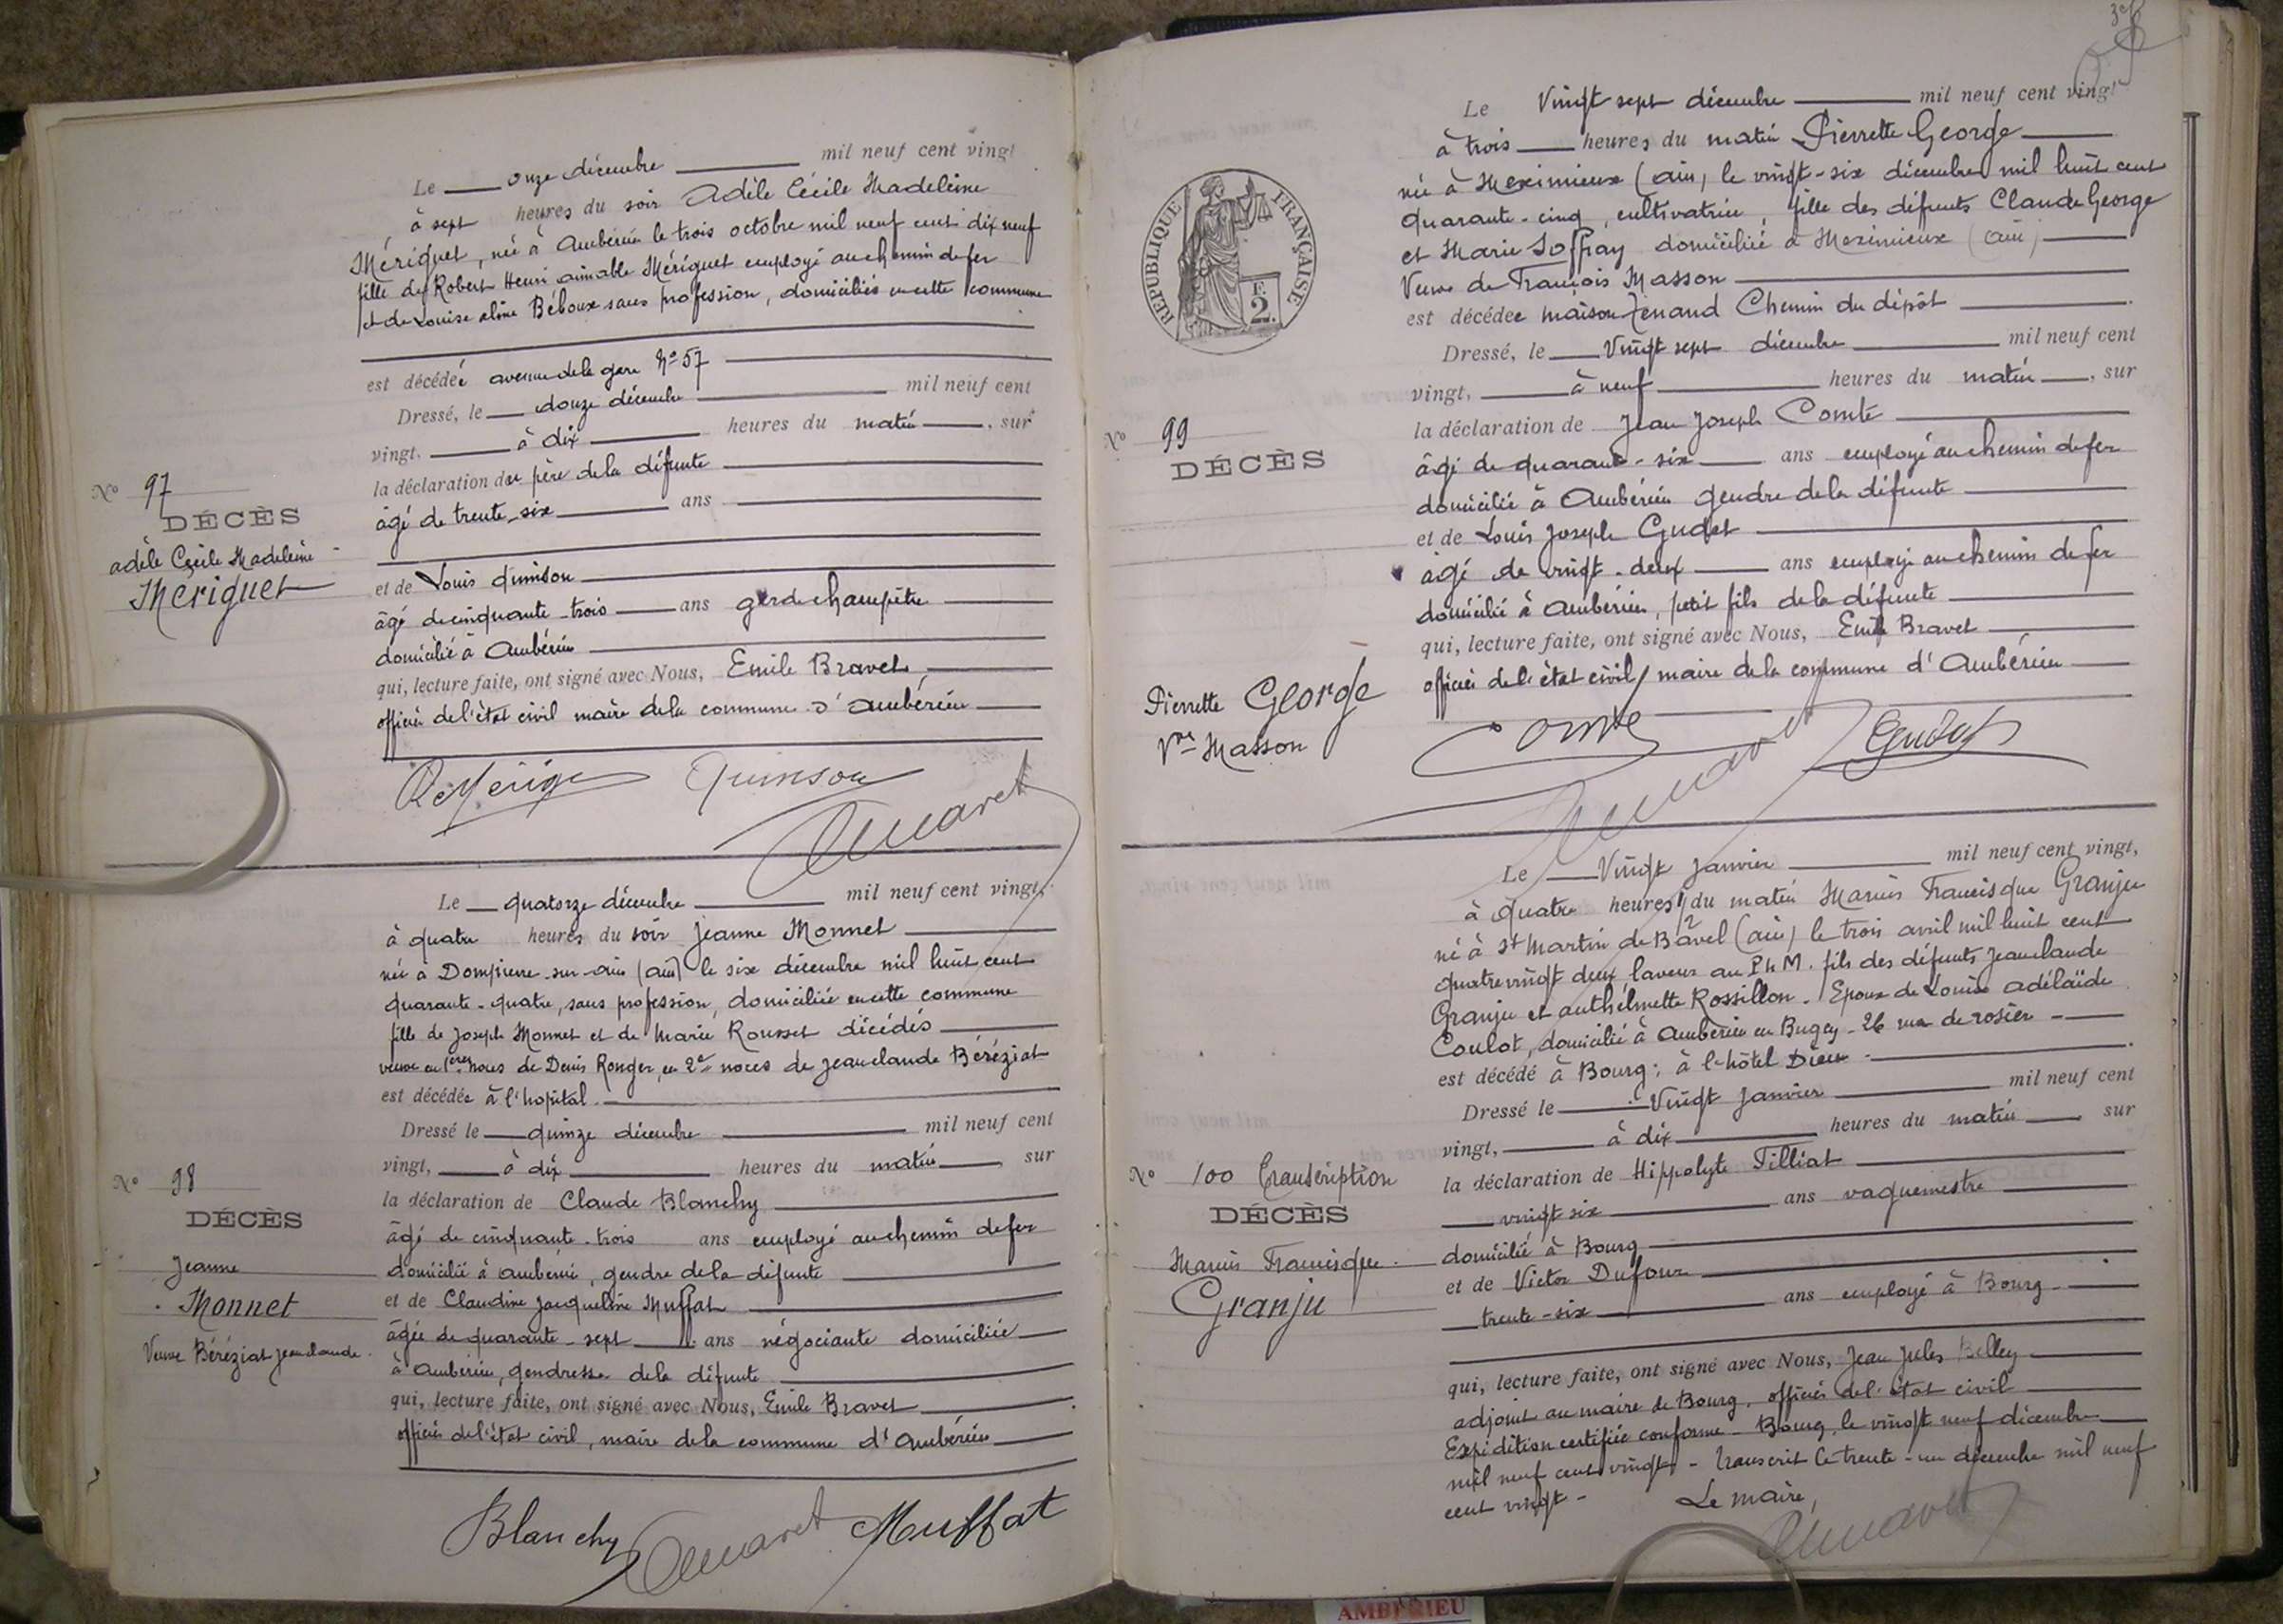 Le onze décembre mil neuf cent vingt
à sept heures du soir Adèle Cécile Madeleine
Mériguet, née à Ambérieu le trois octobre mil neuf cent dix neuf
fille de Robert Henri aimable Mériguet employé au chemin de fer
et de Louise aline Béboux sans profession, domiciliés en cette commune
est décédée avenue de la gare No 57
Dressé, le douze décembre mil neuf cent
vingt, à dix heures du matin, sur
la déclaration du père de la défunte
âgé de trente-six ans
et de Louis Quinson
âgé de cinquante-trois ans garde champêtre
domicilié à Ambérieu
qui, lecture faite, ont signé avec Nous, Emile Bravet,
officier de l'état civil maire de la commune d'Ambérieu
No 97
DÉCÈS
adèle Cécile Madeleine
Mériguet
Quinson
Le quatorze décembre mil neuf cent vingt,
à quatre heures du soir Jeanne Monnet
née à Dompierre-sur-ain (ain) le six décembre mil huit cent
quarante-quatre, sans profession, domiciliée en cette commune
fille de Joseph Monnet et de Marie Rousset décédés
veuve en 1ères noces de Denis Ronger, en 2e noces de Jean claude Béréziat
est décédée à l'hopital
Dressé le quinze décembre mil neuf cent
vingt, à dix heures du matin sur
la déclaration de Claude Blanchy
âgé de cinquante-trois ans employé au chemin de fer
domicilié à ambérieu, gendre de la défunte
et de Claudine Jacqueline Muffat
âgée de quarante-sept ans négociante domiciliée
à Ambérieu, gendresse de la défunte
qui, lecture faite, ont signé avec Nous, Emile Bravet
officier de l'état civil, maire de la commune d'Ambérieu
No 98
DÉCÈS
Jeanne
Monnet
Veuve Béréziat Jean claude
Blanchy Muffat
Le Vingt sept décembre mil neuf cent vingt
à trois heures du matin Pierrette George
née à Meximieux (ain) le vingt-six décembre mil huit cent
quarante-cinq, cultivatrice, fille des défunts Claude George
et Marie Joffray domiciliée à Meximieux (ain)
Veuve de François Masson
est décédée maison Zenand Chemin du dépôt
Dressé, le Vingt sept décembre mil neuf cent
vingt, à neuf heures du matin, sur
la déclaration de Jean Joseph Comte
âgé de quarante-six ans employé au chemin de fer
domicilié à Ambérieu gendre de la défunte
et de Louis Joseph Gudet
âgé de vingt-deux ans employé au chemin de fer
domicilié à Ambérieu, petit fils de la défunte
qui, lecture faite, ont signé avec Nous, Emile Bravet
officier de l'état civil, maire de la commune d'Ambérieu
RÉPUBLIQUE FRANÇAISE
F. 2.
No 99
DÉCÈS
Pierrette George
Vve Masson
Comte Gudet
Le Vingt Janvier mil neuf cent vingt,
à quatre heures 1/2 du matin Marius Francisque Granju
né à St Martin de Bavel (ain) le trois avril mil huit cent
quatre vingt deux, laveur au P.L.M. fils des défunts Jean claude
Granju et anthelmette Rossillon. Epoux de Louise adélaïde
Coulot, domicilié à Ambérieu en Bugey - 26 rue de rosier -
est décédé à Bourg; à l'hôtel Dieu.
Dressé le Vingt Janvier mil neuf cent
vingt, à dix heures du matin sur
la déclaration de Hippolyte Tilliat
vingt six ans vaguemestre
domicilié à Bourg
et de Victor Dufour
trente-six ans employé à Bourg
qui, lecture faite, ont signé avec Nous, Jean Jules Belley
adjoint au maire de Bourg, officier de l'état civil
Expédition certifiée conforme - Bourg, le vingt neuf décembre
mil neuf cent vingt - Transcrit le trente-un décembre mil neuf
cent vingt -
Le maire,
No 100 Transcription
DÉCÈS
Marius Francisque
Granju
AMBÉRIEU